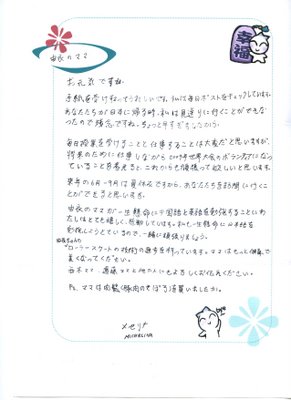 由衣のママ
幸福
お元気ですね。
手紙を受け取ってうれしいです。私は毎日ポストをチェックしています。
あなたたちが日本に帰る時、私は見送りに行くことができな
かったので残念ですね。ちょっと早すぎるようだから。
毎日授業を受けることと仕事することは大変だと思いますが、
将来のために仕事しながら 世界大会のボランティアになって
いることを考えると、これからも頑張って欲しいと思います。
来年の6月〜9月は夏休みですから、あなたたちを訪問に行くこ
とができると思います。
由衣のママが一生懸命に中国語と英語を勉強することにわ
たしはとても嬉しく感動しています。わたしも一生懸命に日本語を
勉強しようとしているので、一緒に頑張りましょう。
由衣ちゃんの
ローラースケートの技術の進歩を祈っています。ママはもっと健康で
美しくなってください。
西本ママ、遠藤ママと他の人にもよろしくお伝えください。
Ps. ママは肉鬆(豚肉のそぼろ)は買いましたか。
メセリナ
MICHELINA
bye